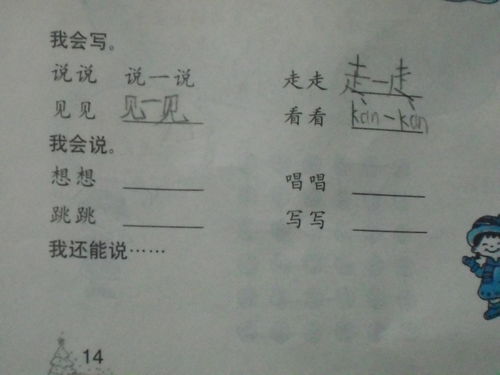 我会写。
说说 说一说 走走 走一走
见见 见一见 看看 kàn一kàn
我会说。
想想 唱唱
跳跳 写写
我还能说……
14